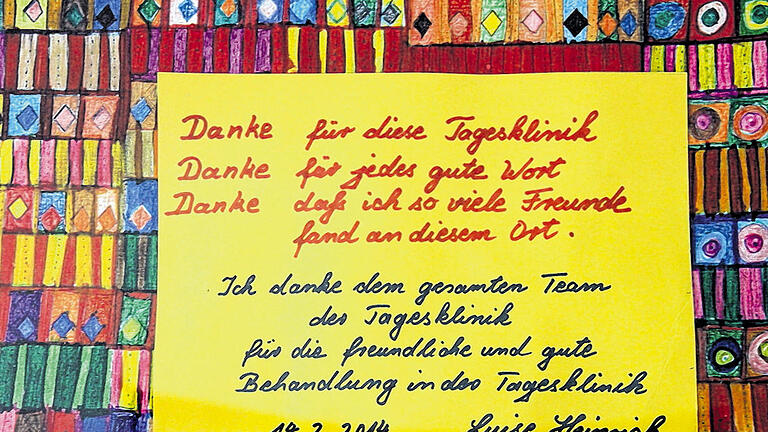 Danke für diese Tagesklinik
Danke für jedes gute Wort
Danke daß ich so viele Freunde
fand an diesem Ort.
Ich danke dem gesamten Team
der Tagesklinik
für die freundliche und gute
Behandlung in der Tagesklinik
14.2.2014 Luise Heinrich